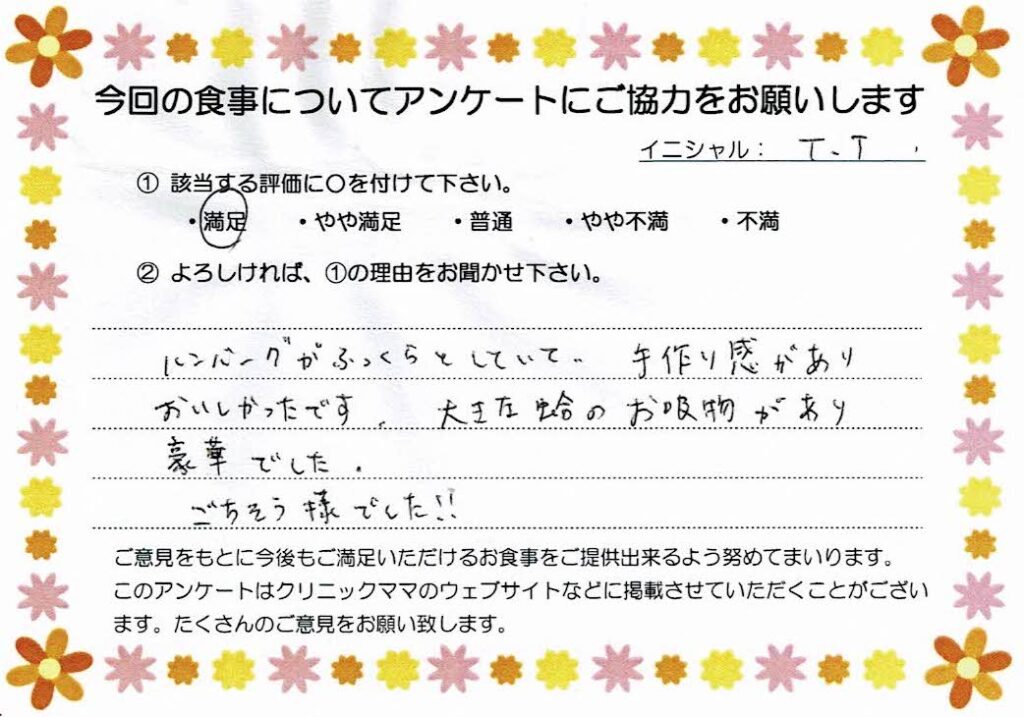 今回の食事についてアンケートにご協力をお願いします
イニシャル： T.T
① 該当する評価に〇を付けて下さい。
・満足 ・やや満足 ・普通 ・やや不満 ・不満
② よろしければ、①の理由をお聞かせ下さい。
ハンバーグがふっくらとしていて、 手作り感があり
おいしかったです。 大きな蛤のお吸物があり
豪華でした。
ごちそう様でした!!
ご意見をもとに今後もご満足いただけるお食事をご提供出来るよう努めてまいります。
このアンケートはクリニックママのウェブサイトなどに掲載させていただくことがござい
ます。たくさんのご意見をお願い致します。